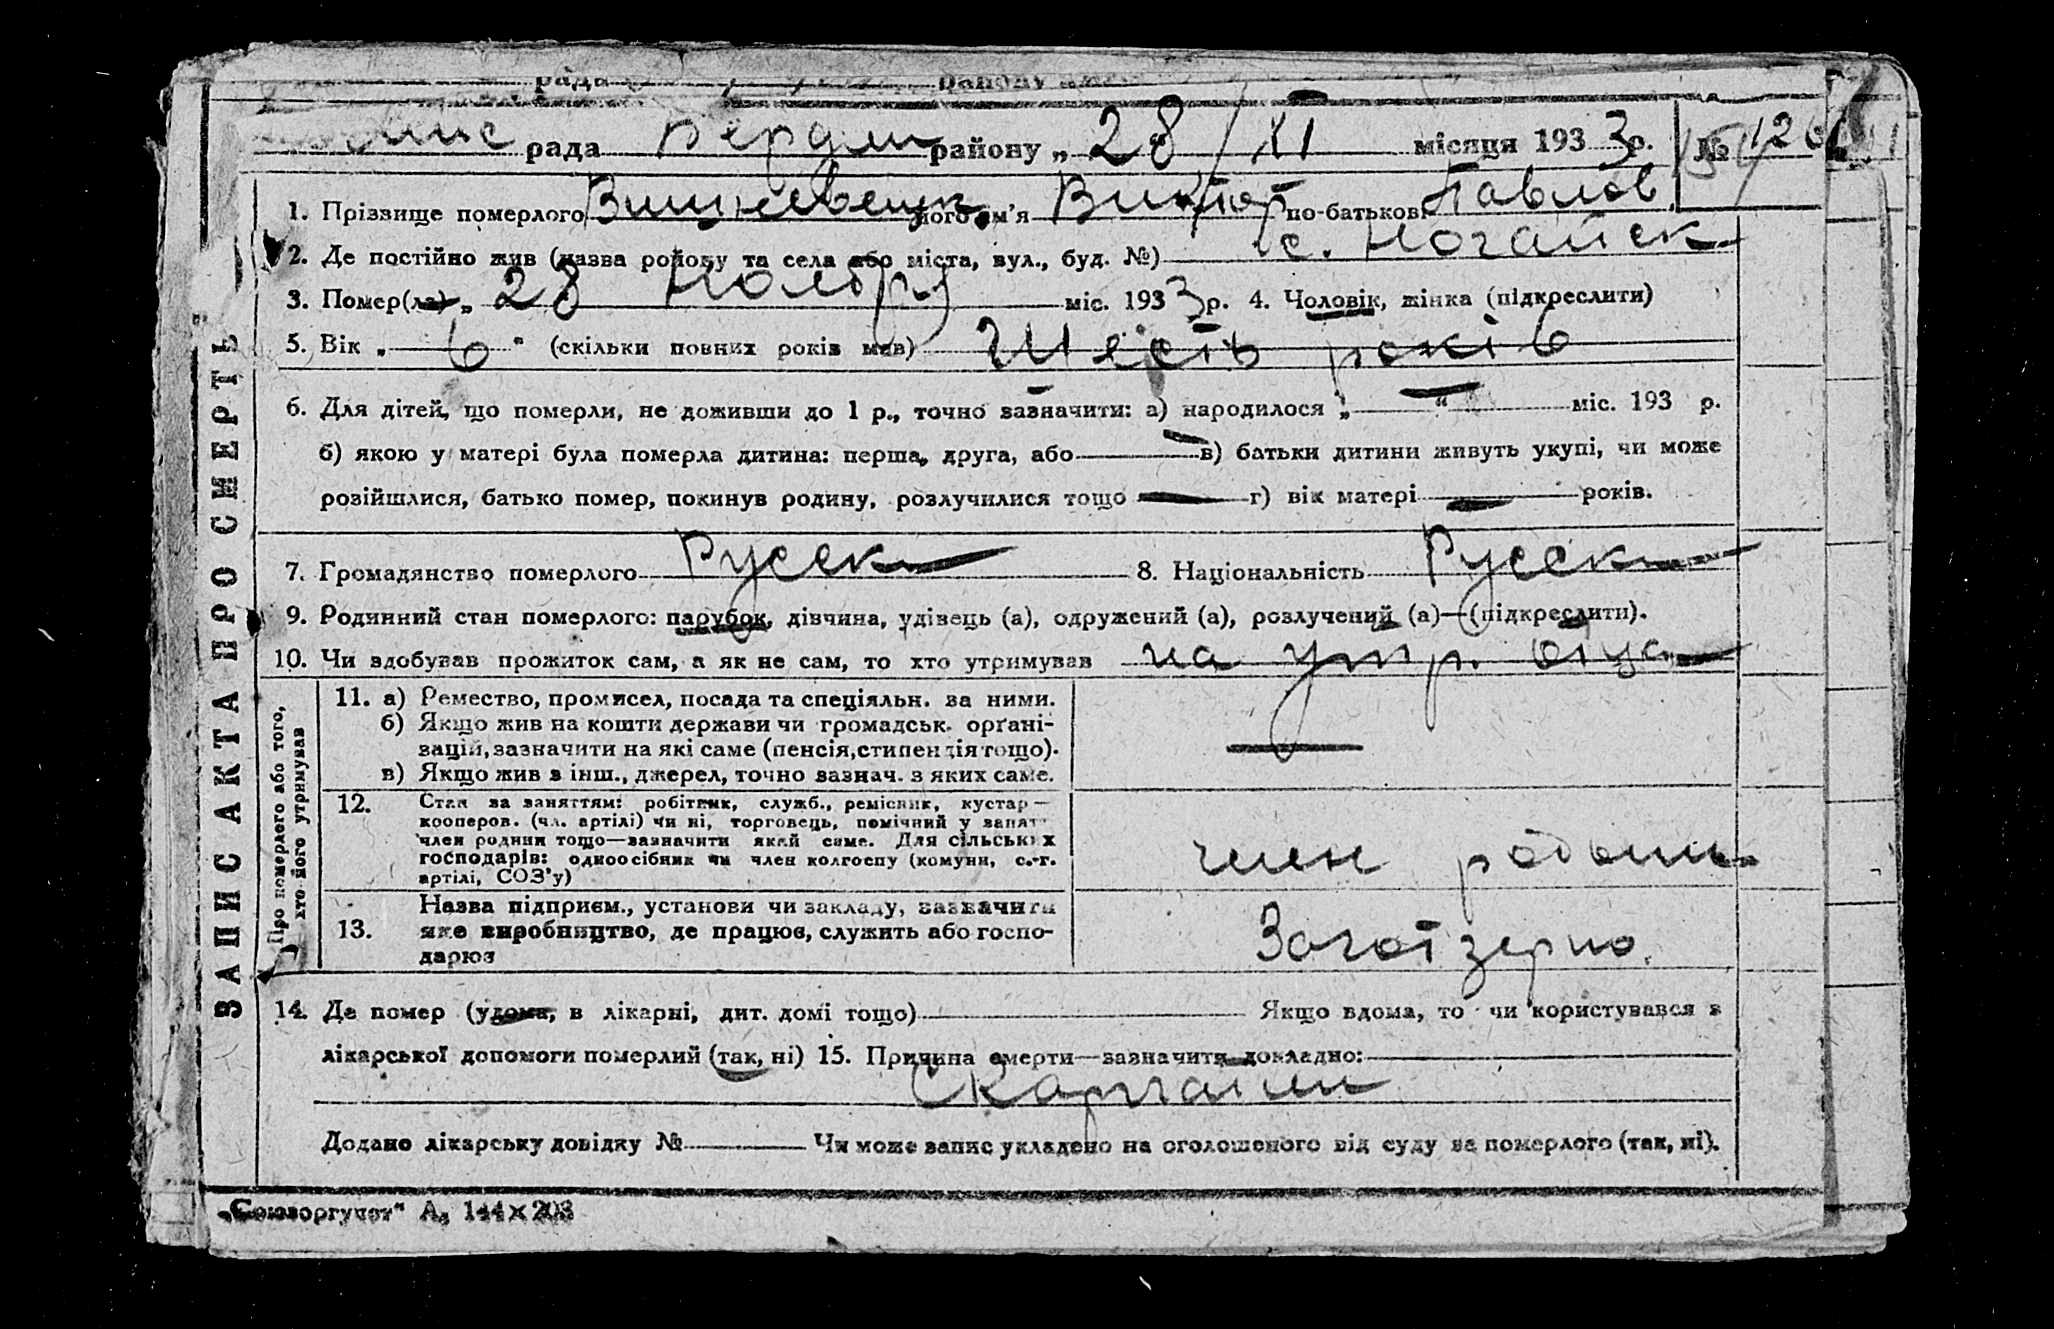 рада району
рада Бердян району „ 28/XI місяця 193 3 р. № 126
1. Прізвище померлого Вишневецк його ім'я Виктор по-батькові Павлов
2. Де постійно жив (назва району та села або міста, вул., буд. №) с. Ногайск
3. Помер(ла) „ 28 Ноября міс. 193 3 р. 4. Чоловік, жінка (підкреслити)
5. Вік „ 6 " (скільки повних років мав) Шесть років
6. Для дітей, що померли, не доживши до 1 р., точно зазначити: а) народилося „ — " міс. 193 р.
б) якою у матері була померла дитина: перша, друга, або — в) батьки дитини живуть укупі, чи може
розійшлися, батько помер, покинув родину, розлучилися тощо — г) вік матері — років.
7. Громадянство померлого Русск 8. Національність Русск
9. Родинний стан померлого: парубок, дівчина, удівець (а), одружений (а), розлучений (а)—(підкреслити).
10. Чи здобував прожиток сам, а як не сам, то хто утримував на утр. отца
ЗАПИС АКТА ПРО СМЕРТЬ
Про померлого або того,
хто його утримував
11. а) Ремество, промисел, посада та спеціяльн. за ними.
б) Якщо жив на кошти держави чи громадськ. орґані-
зацій, зазначити на які саме (пенсія, стипендія тощо).
в) Якщо жив з інш., джерел, точно зазнач. з яких саме.
—
12. Стан за заняттям: робітник, служб., ремісник, кустар—
кооперов. (чл. артілі) чи ні, торговець, помічний у занят
член родини тощо—зазначити який саме. Для сільських
господарів: одноосібник чи член колгоспу (комуни, с.-г.
артілі, СОЗ'у)
член родыни
13. Назва підприєм., установи чи закладу, зазначити
яке виробництво, де працює, служить або госпо-
дарює
Заготзерно.
14. Де помер (удома, в лікарні, дит. домі тощо) Якщо вдома, то чи користувався з
лікарської допомоги померлий (так, ні) 15. Причина смерти—зазначити докладно:
Скарлатин
Додано лікарську довідку № Чи може запис укладено на оголошеного від суду за померлого (так, ні).
„Союзоргучот" А₅ 144×203